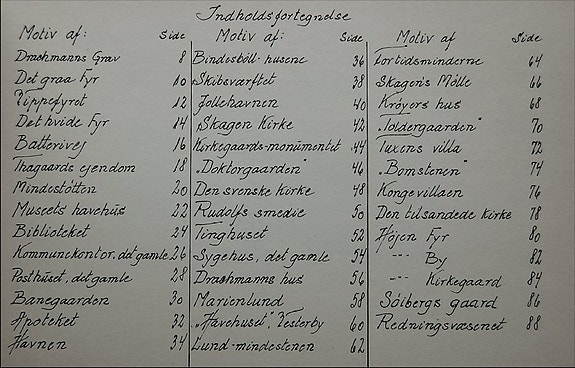 Indholdsfortegnelse
Motiv af: Side
Drachmanns Grav 8
Det graa Fyr 10
Vippefyret 12
Det hvide Fyr 14
Batterivej 16
Thagaards ejendom 18
Mindestøtten 20
Museets havehus 22
Biblioteket 24
Kommunekontor, det gamle 26
Posthuset, det gamle 28
Banegaarden 30
Apoteket 32
Havnen 34
Motiv af: Side
Bindesböll-husene 36
Skibsværftet 38
Jollehavnen 40
„Skagen Kirke 42
Kirkegaards-monumentet 44
„Doktorgaarden" 46
Den svenske Kirke 48
Rudolfs smedie 50
Tinghuset 52
Sygehus, det gamle 54
Drachmanns hus 56
Marienlund 58
„Havehuset", Vesterby 60
Lund-mindestenen 62
Motiv af Side
Fortidsminderne 64
Skagen's Mölle 66
Kröyers hus 68
„Toldergaarden" 70
Tuxens villa 72
„Bomstenen" 74
Kongevillaen 76
Den tilsandede Kirke 78
Höjen Fyr 80
-"- By 82
-"- Kirkegaard 84
Söibergs gaard 86
Redningsvæsenet 88